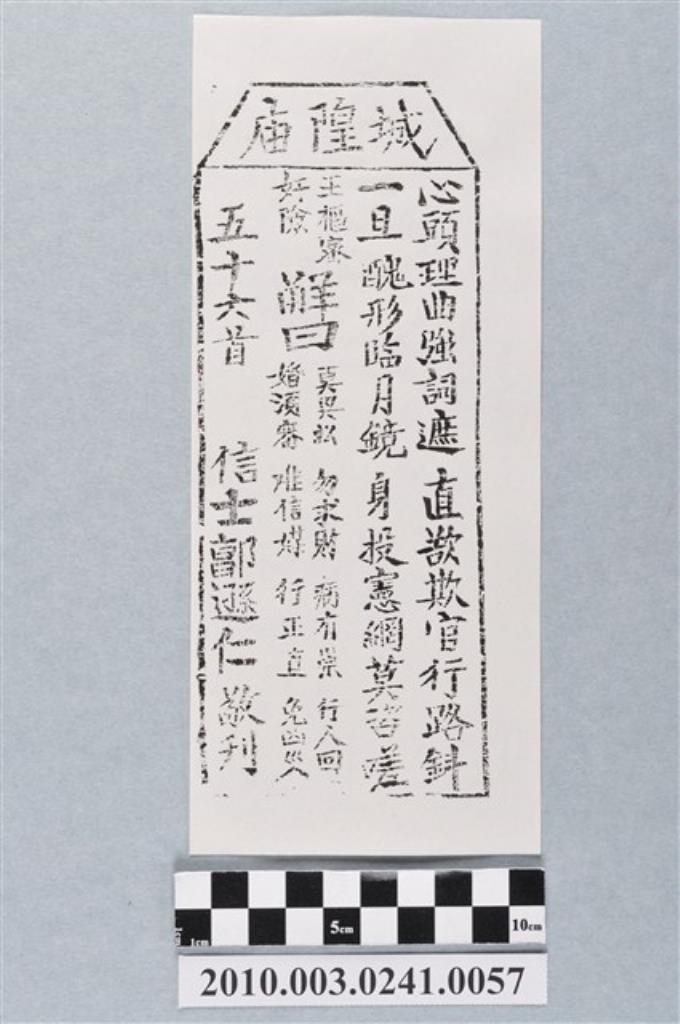 城隍庙
心頭理曲強詞遮 直欲欺官行路斜
一旦醜形臨月鏡 身投憲綱莫咨嗟
王樞密 奸險
解曰
莫興訟 勿求財 病有祟 行人回
婚須審 难信媒 行正直 免凶災
五十六首 信士郭遜仁敬刋
5cm
10cm
1cm
2010.003.0241.0057